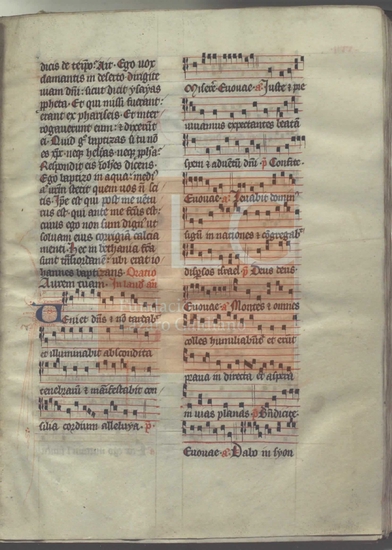 dicis de te ip̃o. Ait. Ego vox
clamantis in deserto dirigite
viam dñi: sicut dicit ysayas
ꝓpheta. Et qui missi fuerant:
erant ex phariseis. Et inter
rogaverunt eum: & dixerũt
ei. Quid gͦ baptizas si tu nõ
es xp̃c. neqꝫ helias. neqꝫ ꝓpha.
Respondit eis ioħes dicens.
Ego baptizo in aqua: medi⁹
aũt vr̃m stetit quem vos ñ sci
tis. Ip̃e est qui post me vētu
rus est. qui ante me fc̃us est:
cuius ego non sum dign⁹ ut
solvam eius corrigiã calcia
menti. Hec in bethania trãs
iordanē: ubi erat io
hannes baptizans. Oratio
Aurem tuam. In laud. añ
Veniet dñs & nõ tardab̃
et illuminabit abscondita
tenebrarũ & mãifestabit con
silia cordium alleluya. p̃.
Misere. Euouae. a. Juste & pie
vivamus expectantes beatã
spem & adventũ dñi. p̃. Confite.
Euouae. a. Levabit domin⁹
signũ in nationes & cõgregab̃
disp̃sos israel. p̃. Deus deus.
Euouae. a. Montes & omnes
colles humiliabũt̃ et erũt
prava in directa et aspera
in vias planas. p̃. Bñdicite.
Euouae. a. Dabo in syon